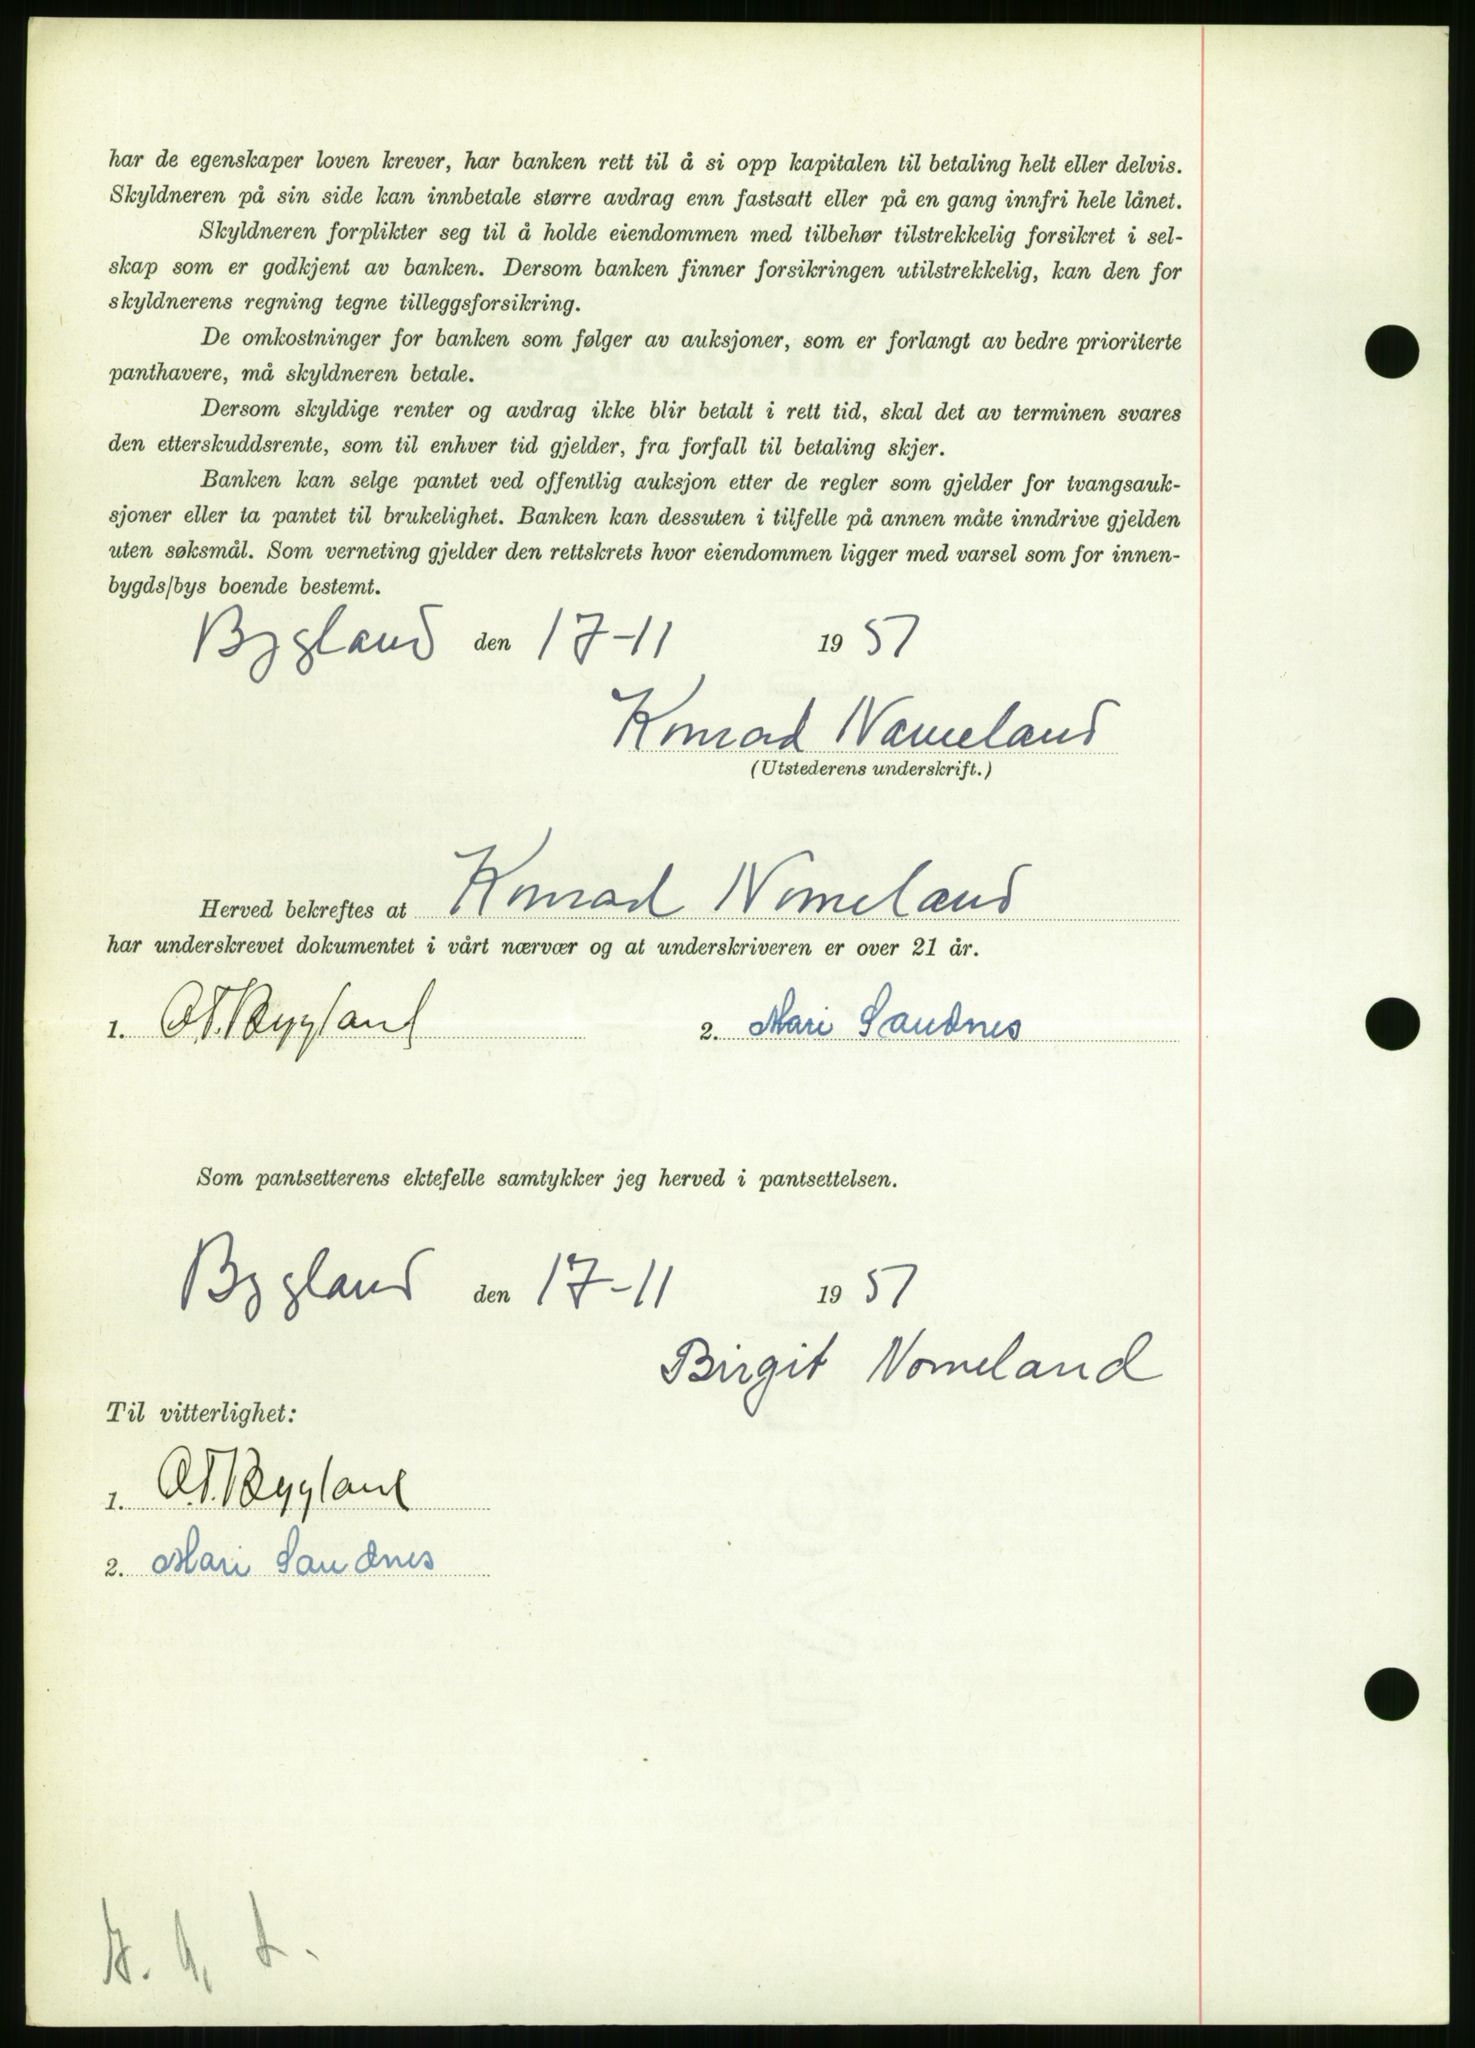 har de egenskaper loven krever, har banken rett til å si opp kapitalen til betaling helt eller delvis.
Skyldneren på sin side kan innbetale større avdrag enn fastsatt eller på en gang innfri hele lånet.
Skyldneren forplikter seg til å holde eiendommen med tilbehør tilstrekkelig forsikret i sel-
skap som er godkjent av banken. Dersom banken finner forsikringen utilstrekkelig, kan den for
skyldnerens regning tegne tilleggsforsikring.
De omkostninger for banken som følger av auksjoner, som er forlangt av bedre prioriterte
panthavere, må skyldneren betale.
Dersom skyldige renter og avdrag ikke blir betalt i rett tid, skal det av terminen svares
den etterskuddsrente, som til enhver tid gjelder, fra forfall til betaling skjer.
Banken kan selge pantet ved offentlig auksjon etter de regler som gjelder for tvangsauk-
sjoner eller ta pantet til brukelighet. Banken kan dessuten i tilfelle på annen måte inndrive gjelden
uten søksmål. Som verneting gjelder den rettskrets hvor eiendommen ligger med varsel som for innen-
bygds/bys boende bestemt.
Bygland den 17-11 1951
Konrad Nomeland
(Utstederens underskrift.)
Herved bekreftes at Konrad Nomeland
har underskrevet dokumentet i vårt nærvær og at underskriveren er over 21 år.
1. O.T. Bygland 2. Mari Sandnes
Som pantsetterens ektefelle samtykker jeg herved i pantsettelsen.
Bygland den 17-11 1951
Birgit Nomeland
Til vitterlighet:
1. O.T. Bygland
2. Mari Sandnes